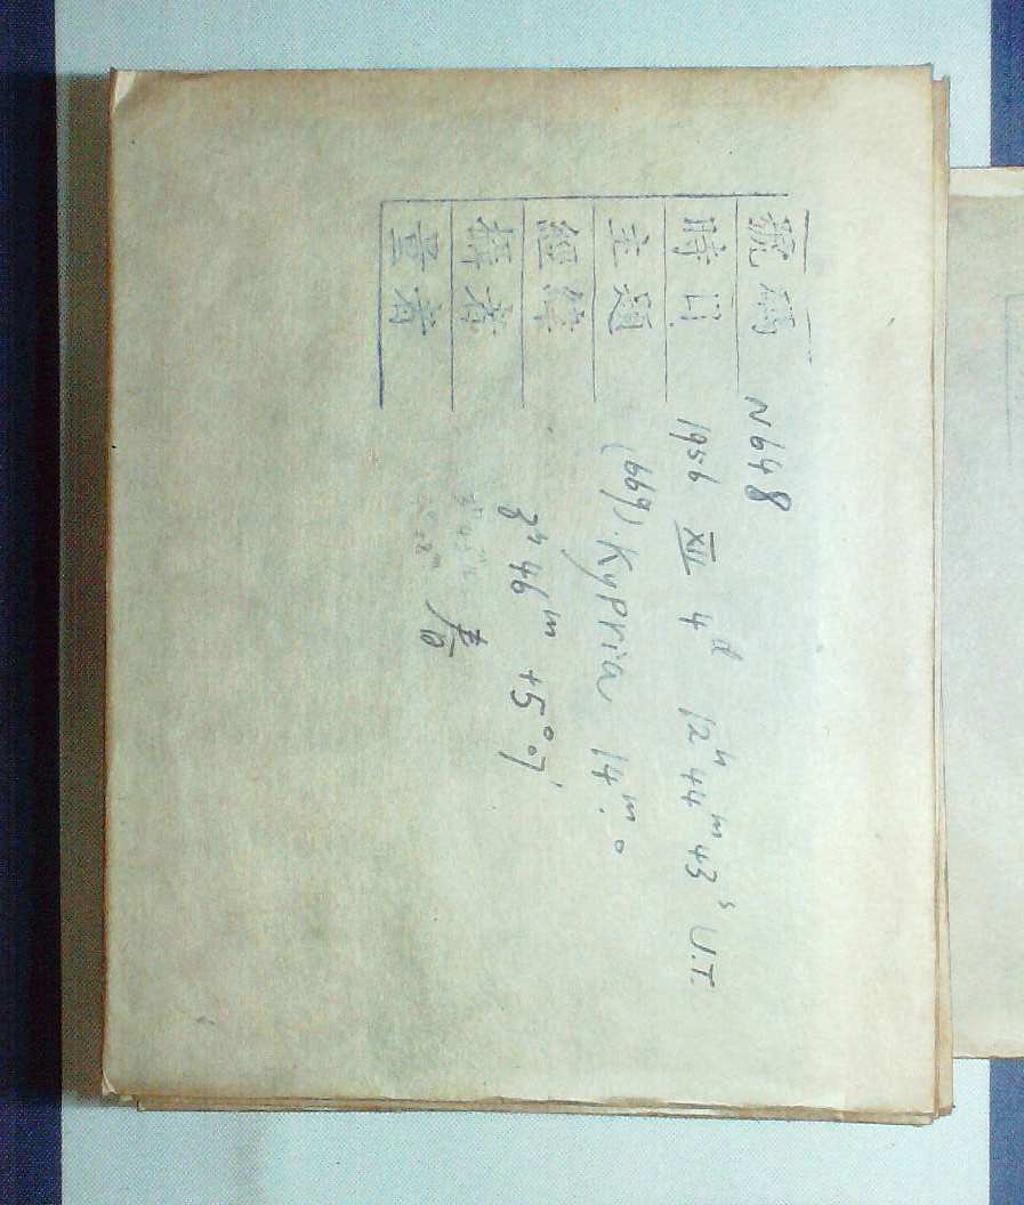 號碼 N648
時日 1956 XII 4d 12h 44m 43s U.T.
主題 (669). Kypria 14m.0
經緯 3h 46m +5°07'
攝者
量者